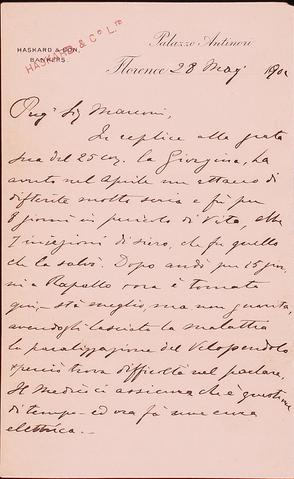 HASKARD & SON,
BANKERS.
HASKARD & Co. LTD
Palazzo Antinori
Florence 28 Mag. 190
Preg. Sig Marconi,
In replica alla grata
sua del 25 cor. la Giorgina, ha
avuto nel Aprile un attacco di
difterite molto seria e fù per
8 giorni in pericolo di Vita, ebbe
7 iniezioni di siero, che fu quello
che la salvò. Dopo andò per 15 gior
ni a Rapallo ora è tornata
qui, stà meglio, ma non guarita,
avendogli lasciato la malattia
la paralizzazione del Velopendolo
e perciò trova difficoltà nel parlare,
Il Medico ci assicura che è questione
di tempo ed ora fà una cura
elettrica.